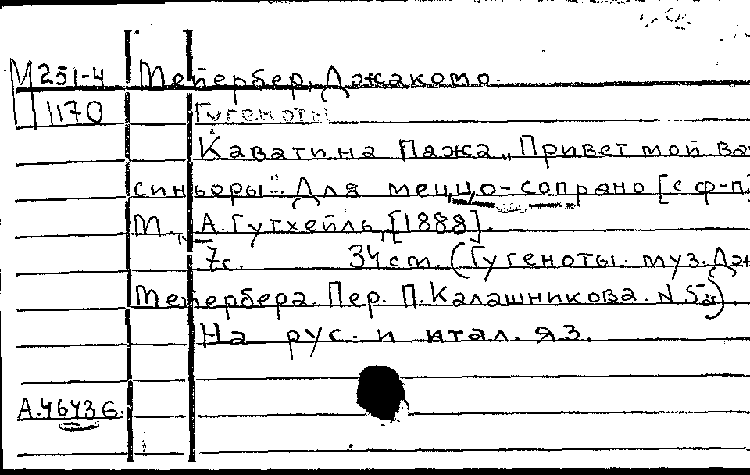 М 251-4 Мейербер, Джакомо.
П 1170 Гугеноты
Каватина Пажа „Привет мой Вам
синьоры". Для меццо-сопрано [с ф-п]
М., А. Гутхейль, [1888].
7с. 34 cm. (Гугеноты. муз. Дж
Мейербера. Пер. П. Калашникова. N 5а)
На рус. и итал. яз.
А.4643 Б.